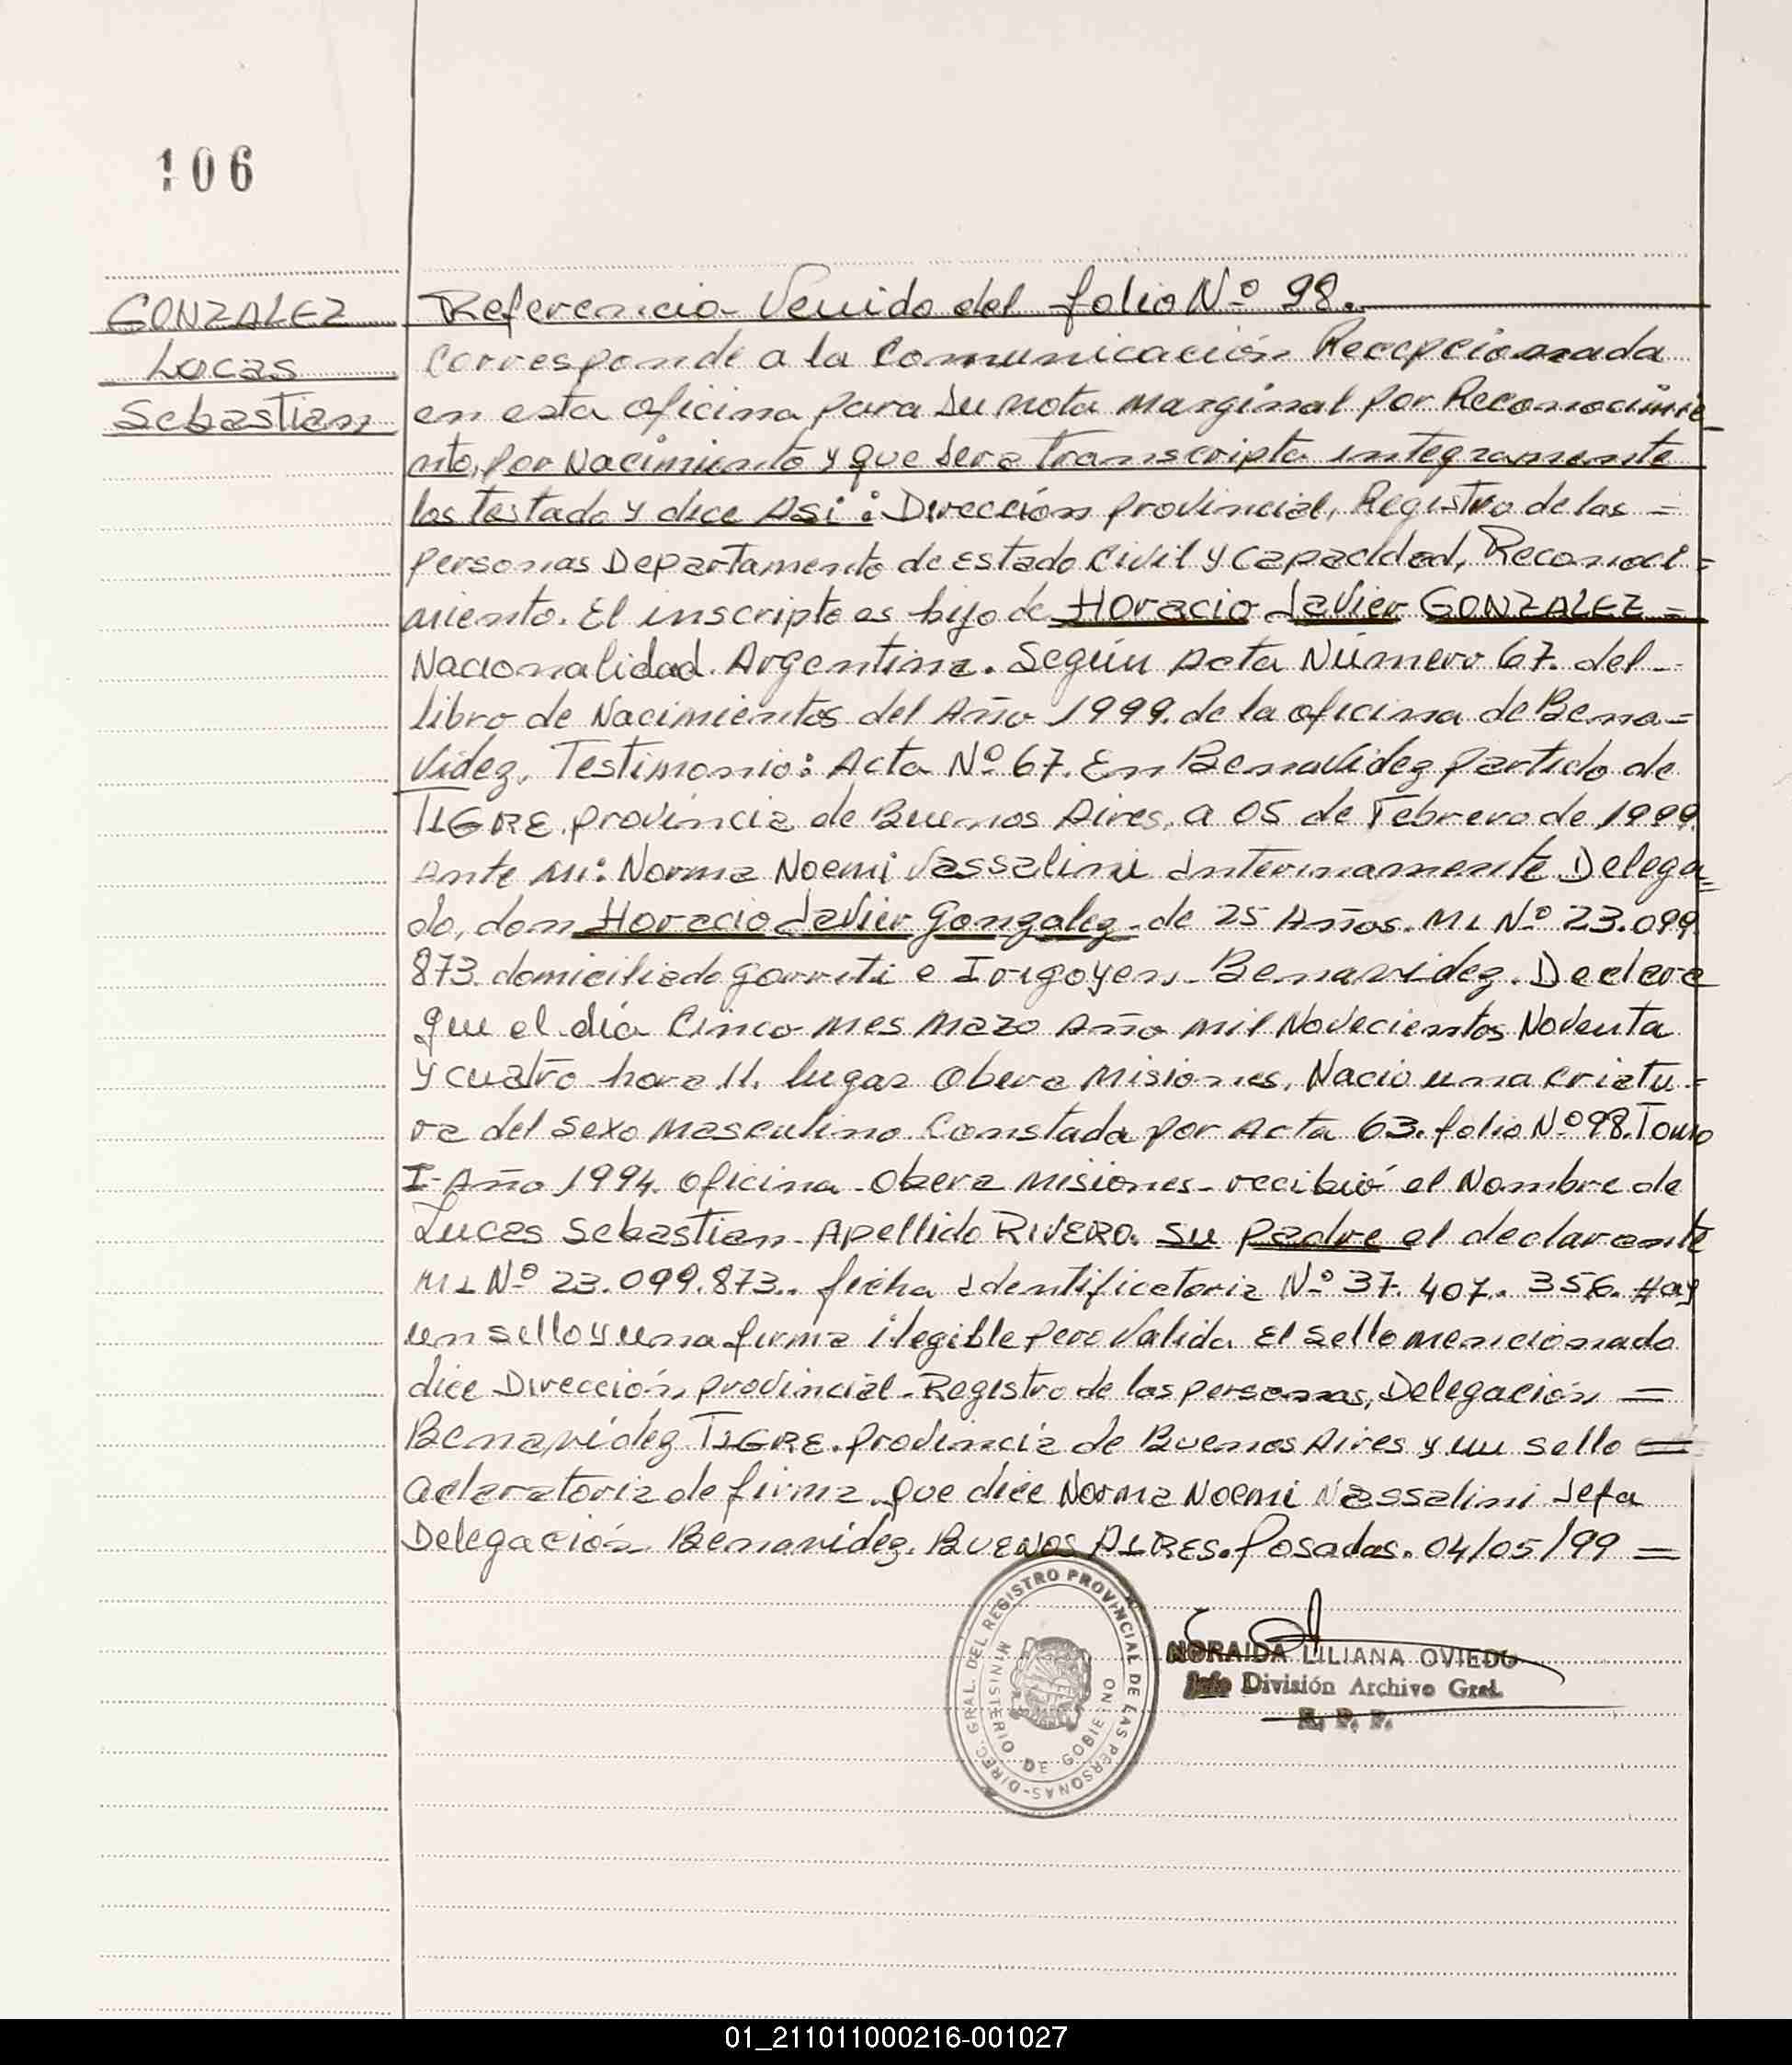 106
GONZALEZ
Lucas
Sebastian
Referencia Venido del folio Nº 98.
Corresponde a la Comunicación Recepcionada
en esta oficina para su nota marginal por Reconocimie_
nto, por Nacimiento y que sera transcripta integramente
los testado y dice Asi: Dirección provincial, Registro de las =
personas Departamento de Estado Civil y Capacidad, Reconoci=
miento. El inscripto es hijo de Horacio Javier GONZALEZ =
Nacionalidad Argentina. Según Acta Número 67. del -
libro de Nacimientos del Año 1999. de la oficina de Bena=
videz. Testimonio: Acta Nº 67. En Benavidez partido de
TIGRE provincia de Buenos Aires, a 05 de Febrero de 1999.
Ante Mi: Norma Noemi Vassalini Interinamente Delega=
do, don Horacio Javier Gonzalez - de 25 Años. MI Nº 23.099.
873. domiciliado Gorriti e Irigoyen - Benavidez. Declara
que el día Cinco mes Mazo Año mil Novecientos Noventa
y cuatro hora 11. lugar Obera Misiones, Nacio una criatu=
ra del sexo Masculino. Constada por Acta 63. folio Nº 98. Tomo
I- Año 1994. oficina - Obera Misiones - recibió el Nombre de
Lucas Sebastian - Apellido RIVERO. su padre el declarante
MI Nº 23.099.873.. ficha Identificatoria Nº 37. 407. 356. Hay
un sello y una firma ilegible pero Valida El sello mencionado
dice Dirección provincial - Registro de las personas, Delegación =
Benavídez TIGRE. provincia de Buenos Aires y un sello =
aclaratoria de firma. que dice Norma Noemi Vassalini Jefa
Delegación Benavídez. BUENOS AIRES. Posadas. 04/05/99 =
DIREC. GRAL. DEL REGISTRO PROVINCIAL DE LAS PERSONAS-
MINISTERIO DE GOBIERNO
NORAIDA LILIANA OVIEDO
Jefe División Archivo Gral.
R. P. P.
01_211011000216-001027